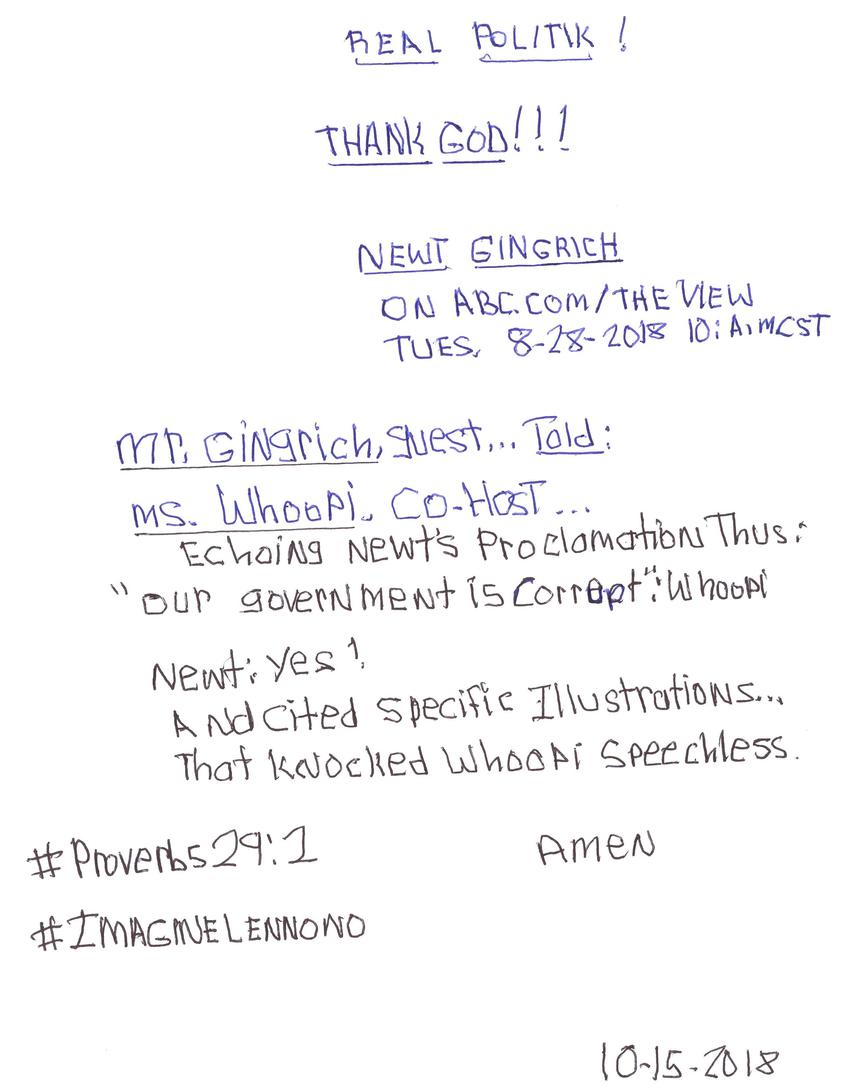 REAL POLITIK !
THANK GOD!!!
NEWT GINGRICH
ON ABC.COM/THE VIEW
TUES. 8-28-2018 10:A.MCST
Mr. GiNgrich, guest... Told:
Ms. WhooPi. Co-HosT...
Echoing Newt's ProclamationThus:
"our government is Corrupt": Whoopi
Newt: yes!
ANd cited specific Illustrations...
That KNocked Whoopi speechless.
#Proverbs29:1 AMEN
#IMAGINELENNONO
10-15-2018